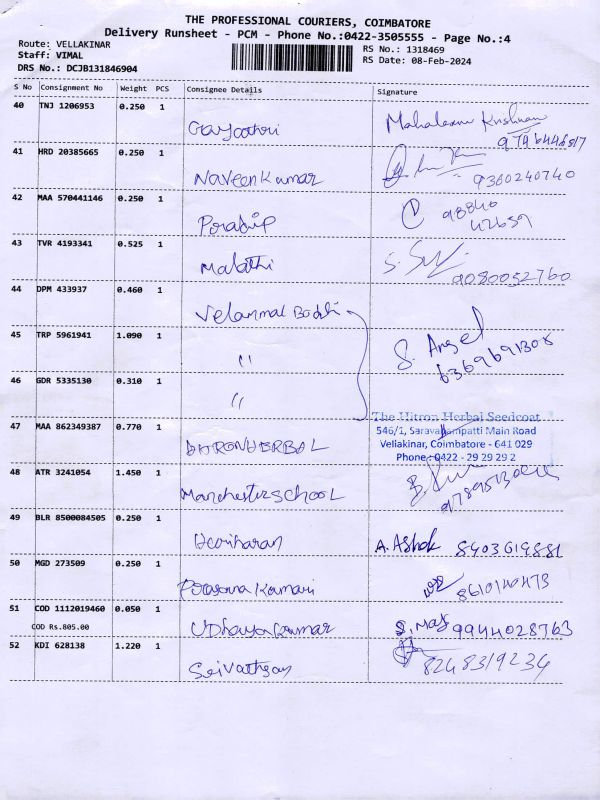 THE PROFESSIONAL COURIERS, COIMBATORE
Delivery Runsheet - PCM - Phone No.:0422-3505555 - Page No.:4
Route: VELLAKINAR
RS No.: 1318469
Staff: VIMAL
RS Date: 08-Feb-2024
DRS No.: DCJB131846904
S No Consignment No Weight PCS Consignee Details Signature
40 TNJ 1206953 0.250 1
Gayathri Mahalaxmi Krishnan
41 HRD 20385665 0.250 1
Naveen Kumar 9360240740
42 MAA 570441146 0.250 1
Pradip 98840
42659
43 TVR 4193341 0.525 1
Malathi 9080052760
44 DPM 433937 0.460 1
Velammal Bodhi
45 TRP 5961941 1.090 1
" S. Angel
6369691308
46 GDR 5335130 0.310 1
"
The Hitron Herbal Seedcoat
47 MAA 862349387 0.770 1 546/1, Saravanampatti Main Road
Vellakinar, Coimbatore - 641 029
HERBAL Phone : 0422 - 29 29 29 2
48 ATR 3241054 1.450 1
Manchester SCHOOL
49 BLR 8500084505 0.250 1
Hariharan A. Ashok 8903619881
50 MGD 273509 0.250 1
Prasanna Kumari 8610140473
51 COD 1112019460 0.050 1
COD Rs.805.00 Udhaya Kumar 9944028763
52 KDI 628138 1.220 1
Srivathsan 8248319234